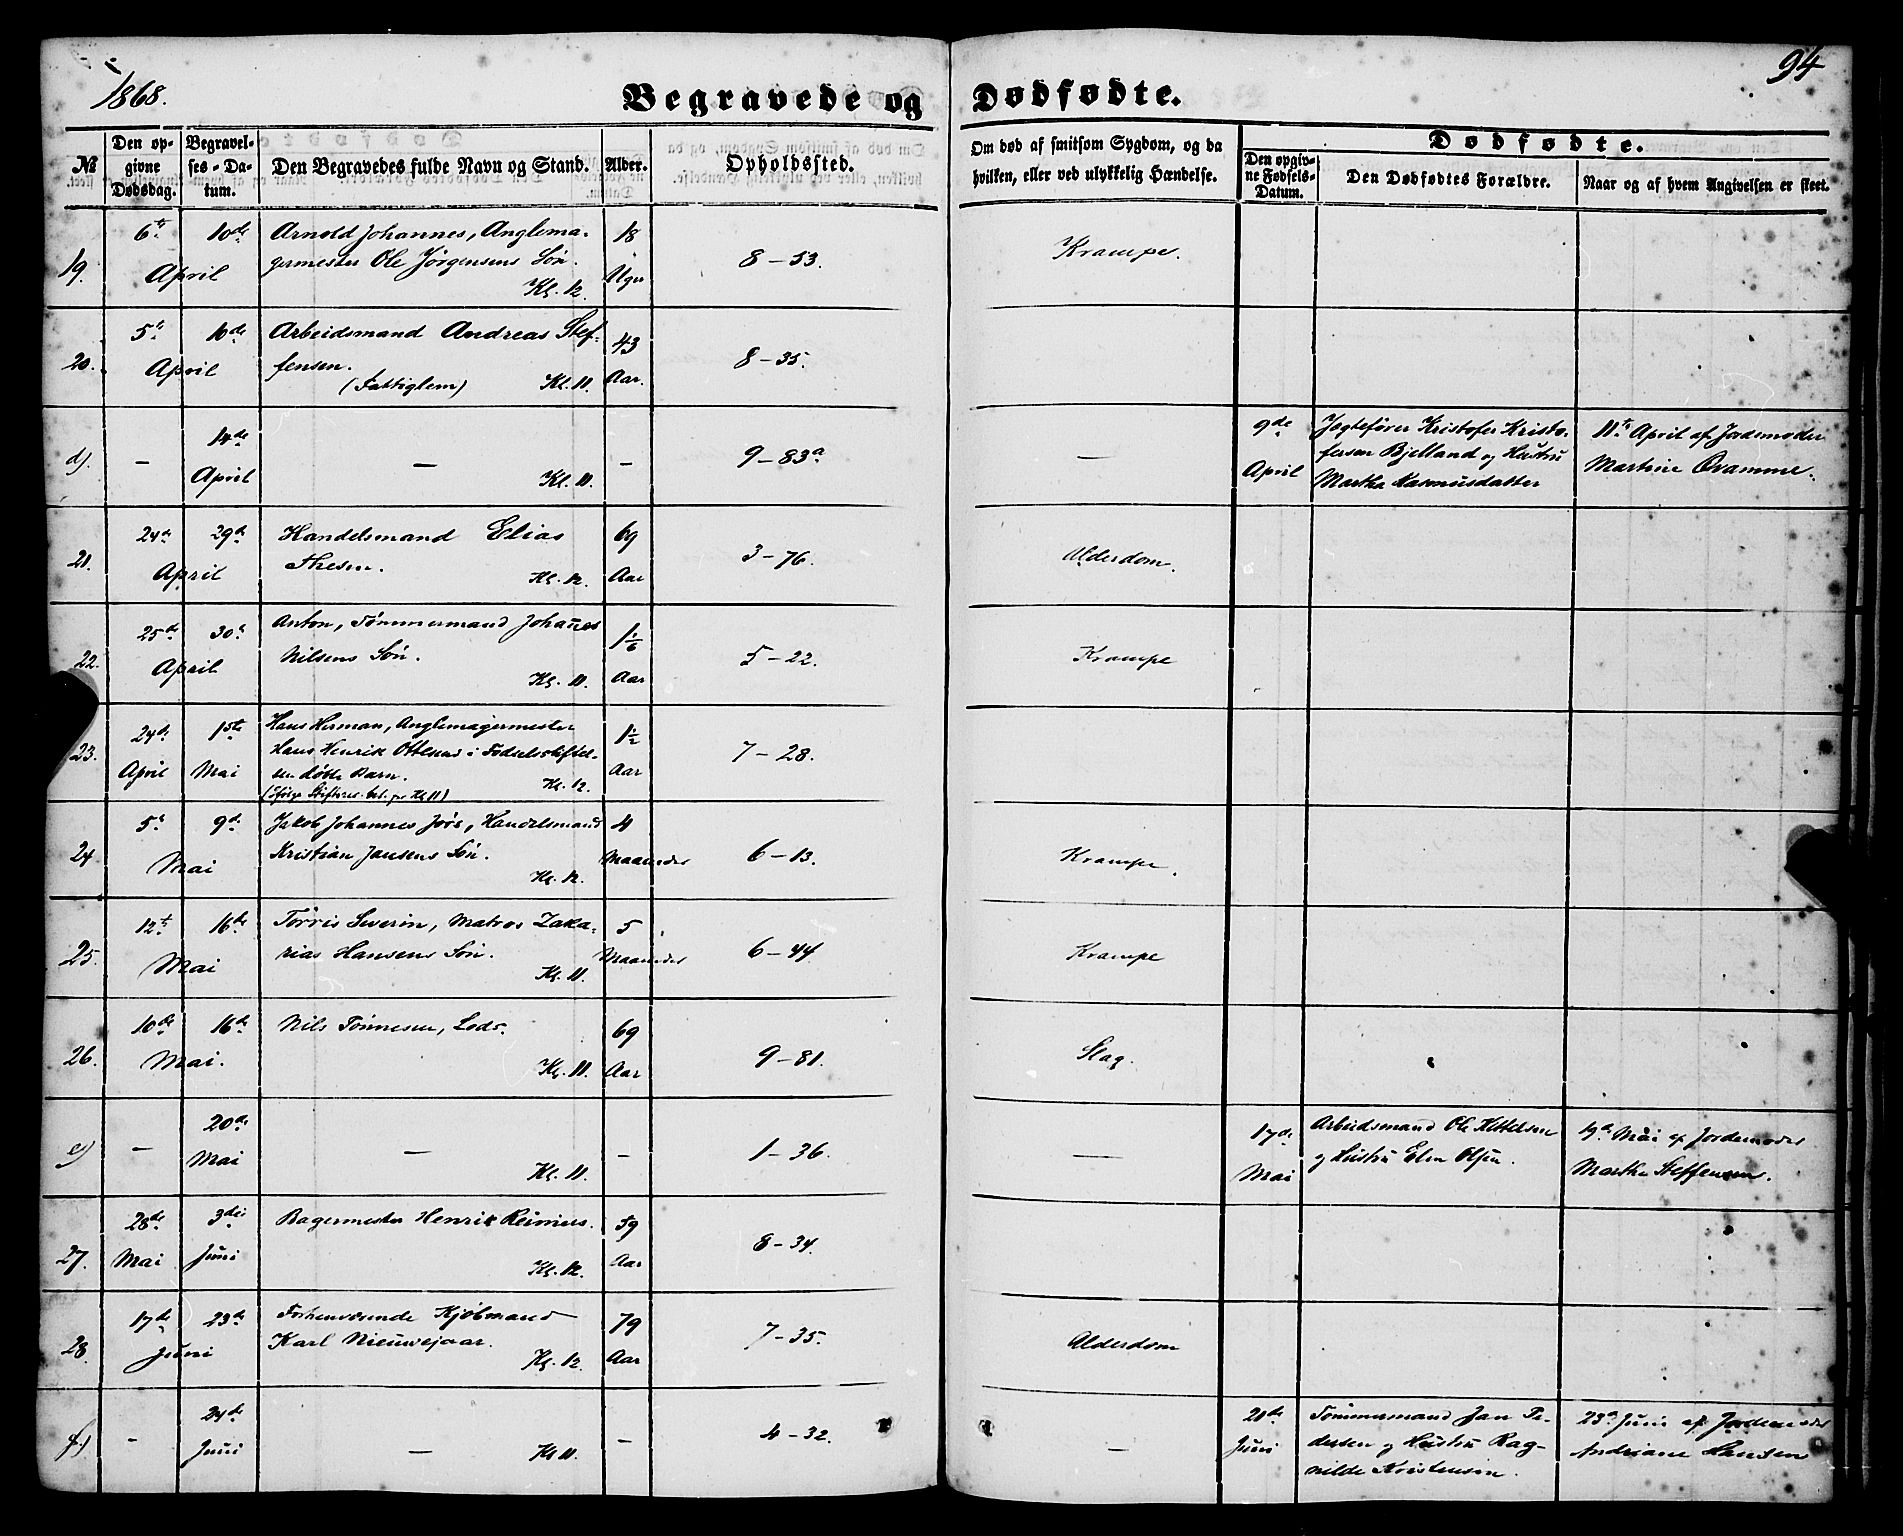 1868.
94
Begravede og Dødfødte.
№
Den opgivne Dødsdag.
Begravelses-Datum.
Den Begravedes fulde Navn og Stand.
Alder.
Opholdssted.
Om død af smitsom Sygdom, og da hvilken, eller ved ulykkelig Hændelse.
Dødfødte.
Den opgivne Fødsels-Datum.
Den Dødfødtes Forældre.
Naar og af hvem Angivelsen er skeet.
19. 6te 10de Arnold Johannes, Anglema- 18
April germester Ole Jørgensens Søn. Uger 8-53. Krampe.
Kl. 12.
20. 5te 10de Arbeidsmand Andreas Stef- 43
April fensen. Aar. 8-35.
(Fattiglem) Kl. 11.
d). - 14de April - Kl. 11. - 9-83a -
9de April
Jagtefører Kristofer Kristo-
fersen Bjelland og Hustru
Martha Rasmusdatter
11te April af Jordemoder
Martine Qvamme.
21. 24de 29de Handelsmand Elias 69
April Thesen. Kl. 12. Aar 3-76. Alderdom.
22. 25de 30te Anton, Tømmermand Johanes 1 1/6
April Nilsens Søn. Aar 5-22. Krampe
Kl. 11.
23. 24de 1ste Hans Herman, Anglemagermester 1 1/2
April Mai Hans Henrik Ottesens i Fødselsstiftel- Aar 7-28.
sen døbte Barn. Kl. 12.
24. 5te 9de Jakob Johannes Joös, Handelsmand 4
Mai Kristian Jansens Søn. Maaneder 6-13. Krampe.
Kl. 12.
25. 12te 16de Tørris Severin, Matros Zaka- 5
Mai rias Hansens Søn. Maaneder 6-44 Krampe
Kl. 11.
26. 10de 16de Nils Tønnesen, Lods. 69
Mai. Kl. 11. Aar 9-81. Slag.
e) - 20de Mai - Kl. 11. - 1-36. -
17de Mai
Arbeidsmand Ole Kittelsen
og Hustru Elen Olsen.
19de Mai af Jordemoder
Martha Steffensen.
27. 28de 3die Bagermester Henrik Reimers. 59
Mai Juni Kl. 12. Aar 8-34.
28. 17de 23de Forhenværende Kjøbmand 79
Juni Karl Nieuwejaar. Aar 7-35. Alderdom
Kl. 12.
f.) - 24de Juni - Kl 11. - 4-32. -
21de Juni
Tømmermand Jan Pe-
dersen og Hustru Rag-
nilde Kristensen.
23de Juni af Jordemoder
Andriane Hansen